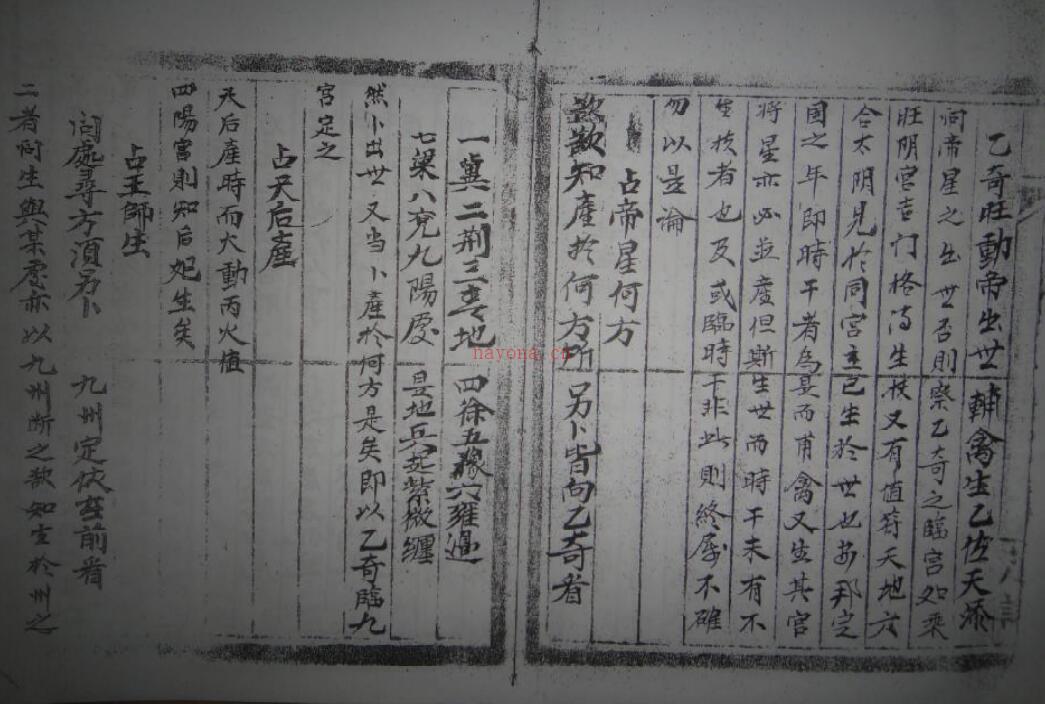 乙奇旺動帝出世 輔禽生乙佐天添
問帝星之出世否則察乙奇之臨宮如乘
旺明宮吉门格局生候又有值符天地六
合太阴見於同宮主已生於世也安邦定
國之年即時干者為是而甫禽又生其宮
將星亦必並產但斯生世而時干未有不
生扶者也及或臨時干非此則終屬不確
勿以是論
占帝星何方
欲知產於何方所 另卜皆向乙奇看
nayona.cn
一冀二荆三青地 四徐五豫六雍過
七梁八兗九陽處 是地兵起紫微纏
然卜出世又当卜產於何方是矣即以乙奇臨九
宮定之
占天后產
天后產時而大動丙火值
四陽宮則知后妃生矣
占王師生
问處尋方須另卜 九州定依在前看
二者问生與某處亦以九州断之欲知生於州之